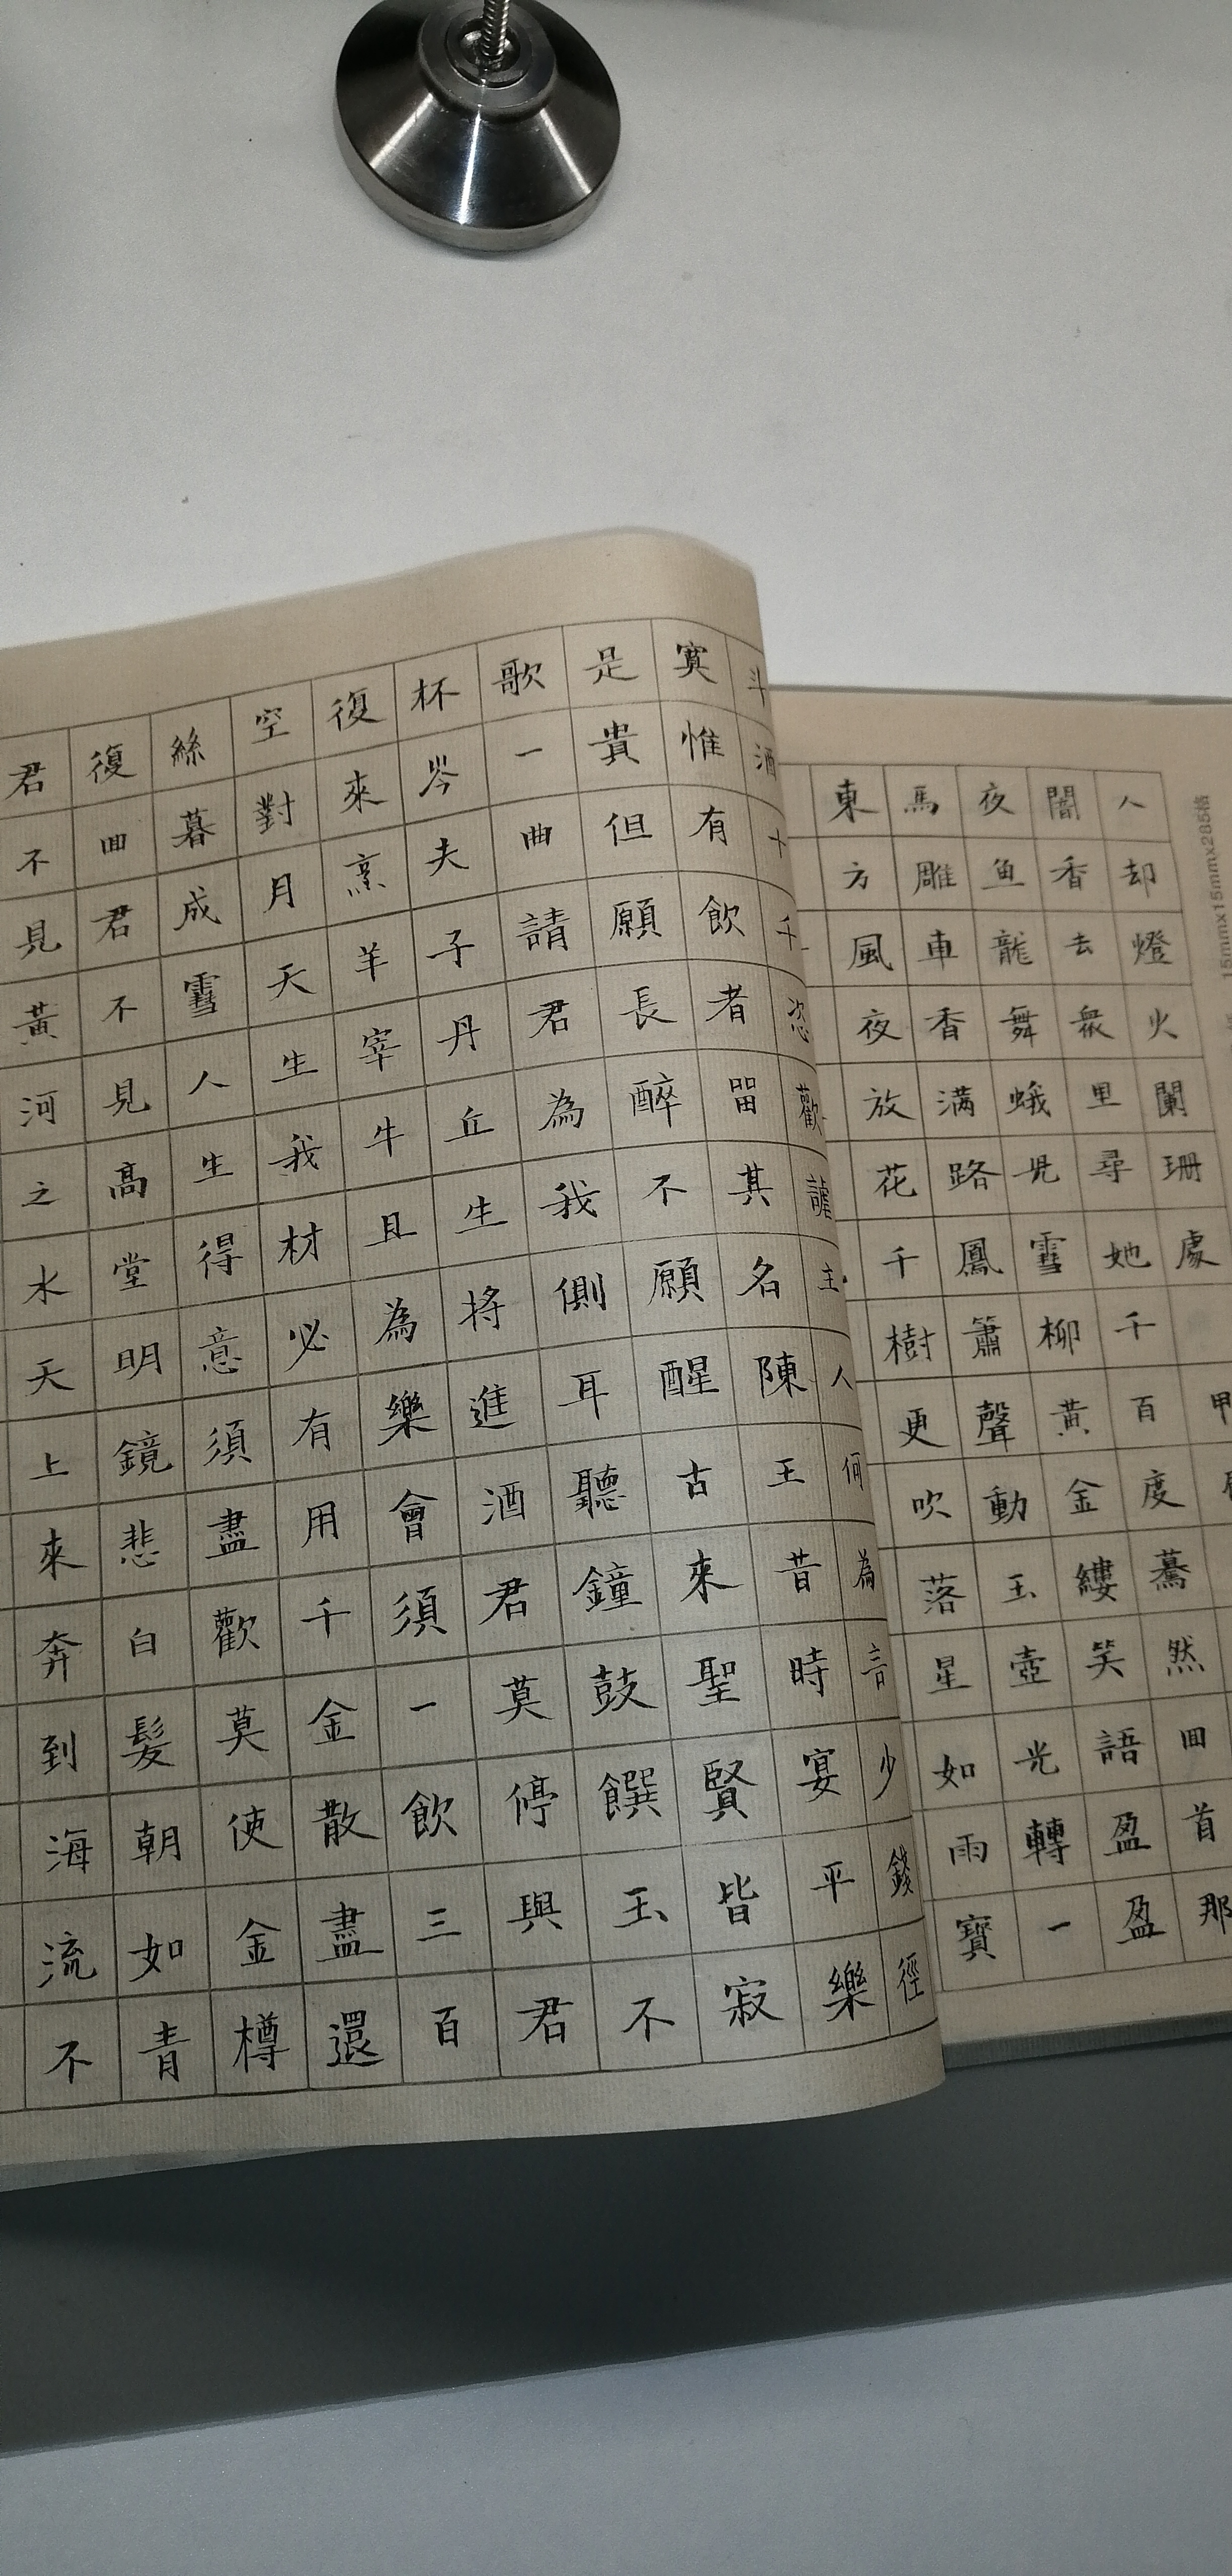 君不見黃河之水天上來奔到海流不
復囬君不見高堂明鏡悲白髮朝如青
絲暮成雪人生得意須盡歡莫使金樽
空對月天生我材必有用千金散盡還
復來烹羊宰牛且為樂會須一飲三百
杯岑夫子丹丘生將進酒君莫停與君
歌一曲請君為我側耳聽鐘鼓饌玉不
是貴但願長醉不願醒古來聖賢皆寂
寞惟有飲者㽞其名陳王昔時宴平樂
斗酒十千恣歡謔主人何為言少錢徑
東方風夜放花千樹更吹落星如雨寶
馬雕車香滿路鳳簫聲動玉壺光轉一
夜鱼龍舞蛾兒雪柳黃金縷笑語盈盈
闇香去衆里尋她千百度驀然囬首那
人却燈火闌珊處
甲
15mmx15mmx285格